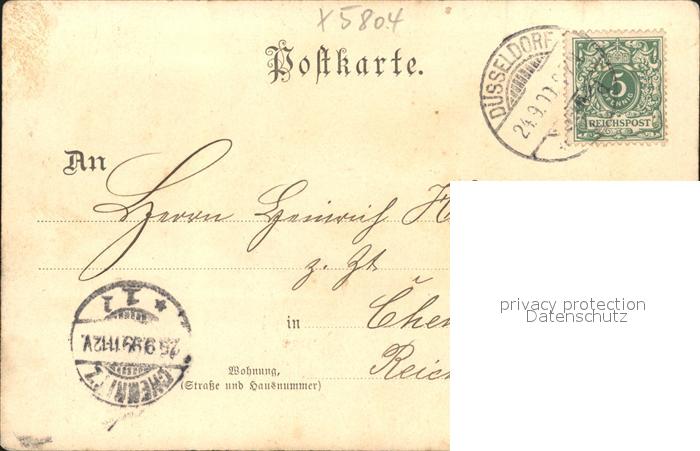 X5804
Postkarte.
DÜSSELDORF
24.9.
5
PFENNIG
REICHSPOST
An
Herrn Heinrich H
z. Zt
privacy protection
Datenschutz
in Chem
Reich
Wohnung,
(Straße und Hausnummer)
* 1 1
25.9.99.11-12V.
CHEMNITZ